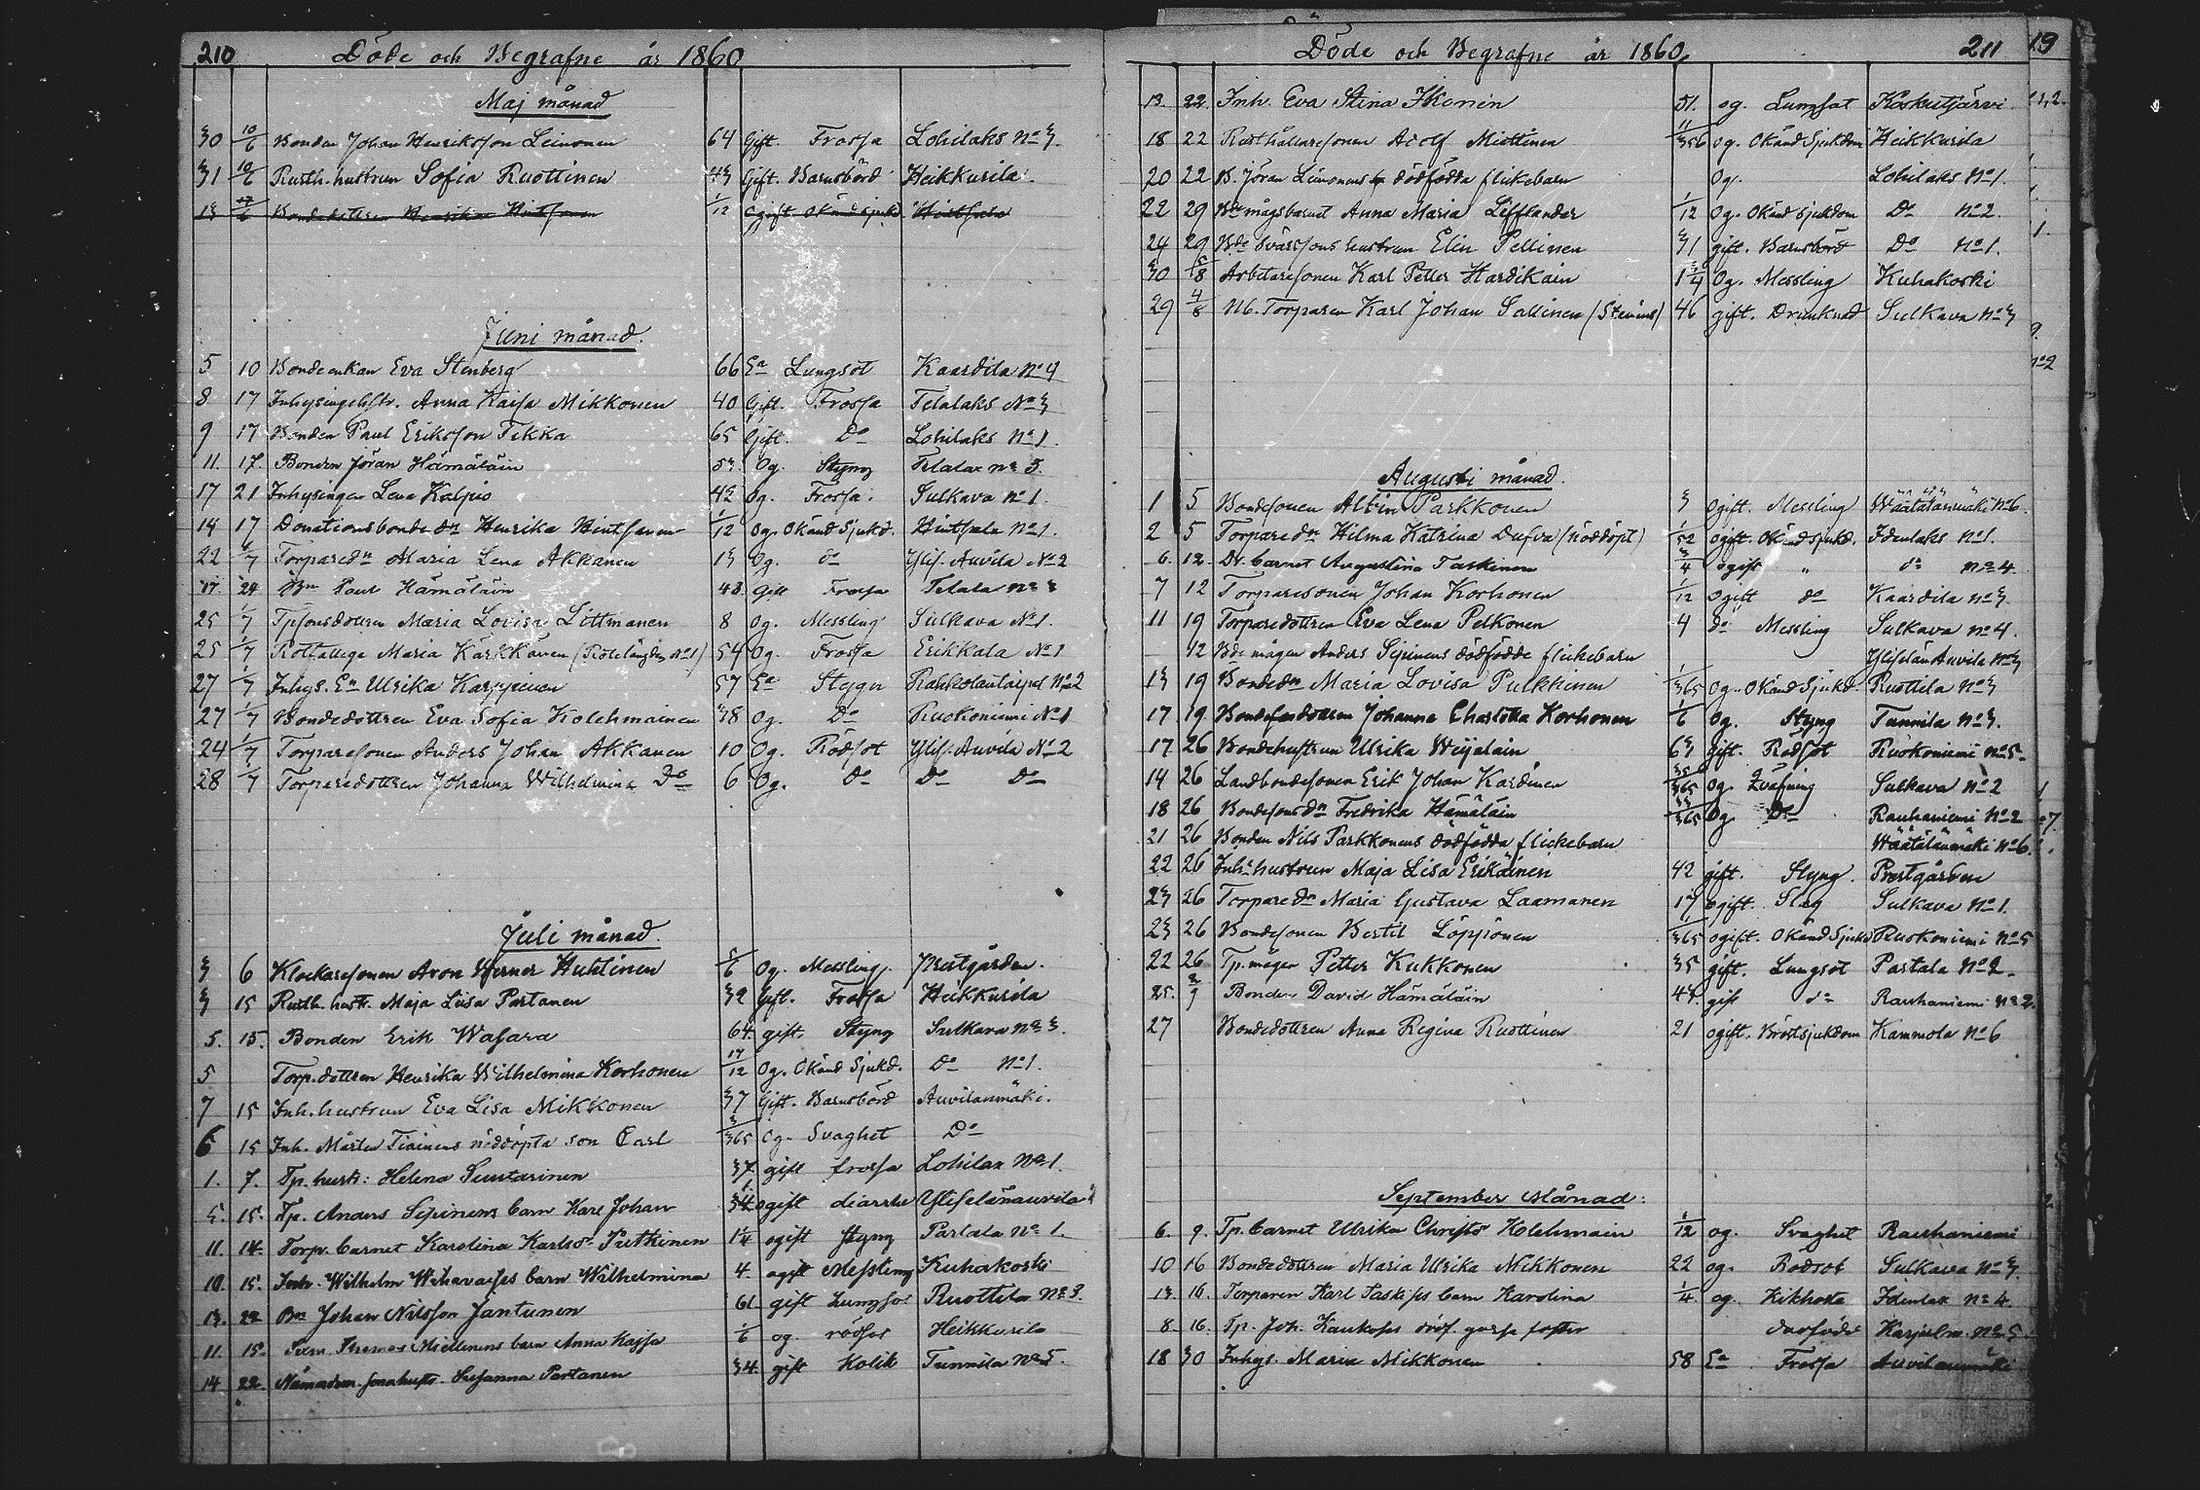 210 Döde och Begrafne år 1860
Maj månad
30 10/6 Bonden Johan Henriksson Leinonen 64 Gift. Frossa Lohilaks No 3.
31 10/6 Rusth. hustrun Sofia Ruottinen 43 Gift. Barnsbörd Heikkurila.
13 17/6 Bondedottren Henrika Hintsanen 1/12 ogift okänd sjukd. Hintsala
Juni månad.
5 10 Bondeenkan Eva Stenberg 66 Ea Lungsot Kaardila No 4
8 17 Inhysingehstr. Anna Kaisa Mikkonen 40 Gift. Frossa Telalaks No 3
9 17 Bonden Paul Eriksson Tikka 65 Gift. Do Lohilaks No 1.
11. 17. Bonden Jöran Hämäläin 53. Og. Styng Telalax no 3.
17 21 Inhysingen Lena Kalpio 42 Og. Frossa. Sulkava No 1.
14 17 Donationsbonde dn Henrika Hintsanen 1/12 Og. Okänd Sjukd. Hintsala No 1.
22 1/7 Torparedn Maria Lena Akkanen 13 Og. do Ylis. Auvila No 2
17 24 Bn Paul Hämäläin 48. Gift Frossa Telala no 3
25 1/7 Tpsonsdottren Maria Lovisa Littmanen 8 Og. Messling Sulkava No 1.
25 1/7 Rotfattiga Maria Karkkänen (Rotelängden No 1) 54 Og. Frossa Erikkala No 1
27 1/7 Inhys. En Ulrika Karppinen 57 Ea Stygn Rahkolantaipal No 2
27 1/7 Bondedottren Eva Sofia Kolehmainen 38 Og. Do Ruokoniemi No 1
24 1/7 Torparesonen Anders Johan Akkanen 10 Og. Rödsot Ylis. Auvila No 2
28 1/7 Torparedottren Johanna Wilhelmina Do 6 Og. Do Do Do
Juli månad.
3 6 Klockaresonen Aron Werner Huhtinen 5/6 Og. Messling. Prestgården.
3 15 Rusth. hustr. Maja Lisa Partanen 32 Gift. Frossa Heikkurila
5. 15. Bonden Erik Wasara 64. gift. Styng Sulkava No 3.
5 Torp.dottren Henrika Wilhelmina Korhonen 1/12 Og. Okänd Sjukd. Do No 1.
7 15 Inh. hustrun Eva Lisa Mikkonen 37 Gift. Barnsbörd Auvilanmäki.
6 15 Inh. Mårten Tiainens nöddöpta son Carl 3/365 Og. Svaghet Do
1. 7. Tp. hust: Helena Suutarinen 37. gift frossa Lohilax No 1.
5. 15. Tp. Anders Sipinens barn Karl Johan ogift diarrhe Ylisenänauvila
11. 14. Torp. barnet Karolina Karlsdr Putkinen 1 1/4 ogift styng Partala No 1.
10. 15. Inh. Wilhelm barn Wilhelmina 4. ogift Messling Kuhakoski
13. 22 Bn Johan Nilsson Jantunen 61 gift Lungsot Ruottila No 3.
11. 15. Thomas Miettinens barn Anna Kajsa 1/6 og. rödsot Heikkurila
14 22. Nämndem. sonahustr. Susanna Partanen 34. gift Kolik Tunnila No 5.
Döde och Begrafne år 1860 211
13. 22. Inh. Eva Stina Ikonen 51. og. Lungsot Koskutjärvi
18 22 Rusthållaresonen Adolf Miettinen 11/356 og. Okänd Sjukdom Heikkurila
20 22 B. Jöran Leinonens dödfödda flickebarn Og. Lohilaks No 1.
22 29 Bde mågsbarnet Anna Maria Lifflander 1/12 Og. Okänd sjukdom Do No 2.
24 29 Bde svärsons hustrun Elin Pellinen 31 gift. Barnsbörd Do No 1.
30 5/8 Arbetaresonen Karl Petter Hardikain 1 3/4 Og. Messling Kuhakoski
29 4/8 Torparen Karl Johan Sallinen 46 gift. Drunknad Sulkava No 3
Augusti månad.
1 5 Bondesonen Albin Parkkonen 3 Ogift. Messling Wäätälänmäki No 6.
2 5 Torparedn Hilma Katrina Dufva (nöddöpt) 1/52 Ogift. Okänd sjukd. Idenlaks No 1.
6. 12. Dr. barnet Augustina Taskinen 3/4 ogift " do No 4.
7 12 Torparesonen Johan Korhonen 1/12 Ogift do Kaardila No 3.
11 19 Torparedottren Eva Lena Pelkonen 4 do Messling Sulkava No 4.
12 Bde mågen Anders Sipinens dödfödde flickebarn Ylisen Auvila No 3
13 19 Bondedn Maria Lovisa Pulkkinen 1/365 Og. Okänd Sjukd. Ruottila No 3
17 19 Johanna Charlotta Korhonen 1/6 Og. Styng Tunnila No 3.
17 26 Bondehustrun Ulrika Weijalain 63 gift. Rödsot Ruokoniemi No 5.
14 26 Landbondesonen Erik Johan Kardinen 35/365 Og. Qväfning Sulkava No 2
18 26 Bondesonsdn Fredrika Hämäläin Og Do Rauhaniemi No 2
21 26 Bonden Nils Parkkonens dödfödda flickebarn Wäätälänmäki No 6.
22 26 Inhs hustrun Maja Lisa Erikäinen 42 gift. Styng. Prestgården
23 26 Torparedn Maria Gustava Laamanen 17 ogift. Slag Sulkava No 1.
23 26 Bondesonen Bertil Löppönen 1/365 ogift. Okänd Sjukd Ruokoniemi No 5
22 26 Tp. mågen Petter Kukkonen 35 gift. Lungsot Partala No 2.
25. 2/9 Bonden David Hämäläin 43. gift do Rauhaniemi No 2.
27 Bondedottren Anna Regina Ruottinen 21 ogift. Bröstsjukdom Kammola No 6
September Månad:
6. 9. Tp. barnet Ulrika Christo Kolehmain 1/12 og. Svaghet Rauhaniemi
10 16 Bondedottren Maria Ulrika Mikkonen 22 og. Rödsot Sulkava No 3.
13. 16. Torparen Karl barn Karolina 1/4 og. Kikhosta Idenlax No 4.
8. 16. Tp. Joh. död. dödfödd No 5
18 30 Inhys. Maria Mikkonen 58 Ea Frossa Auvilanmäki
19